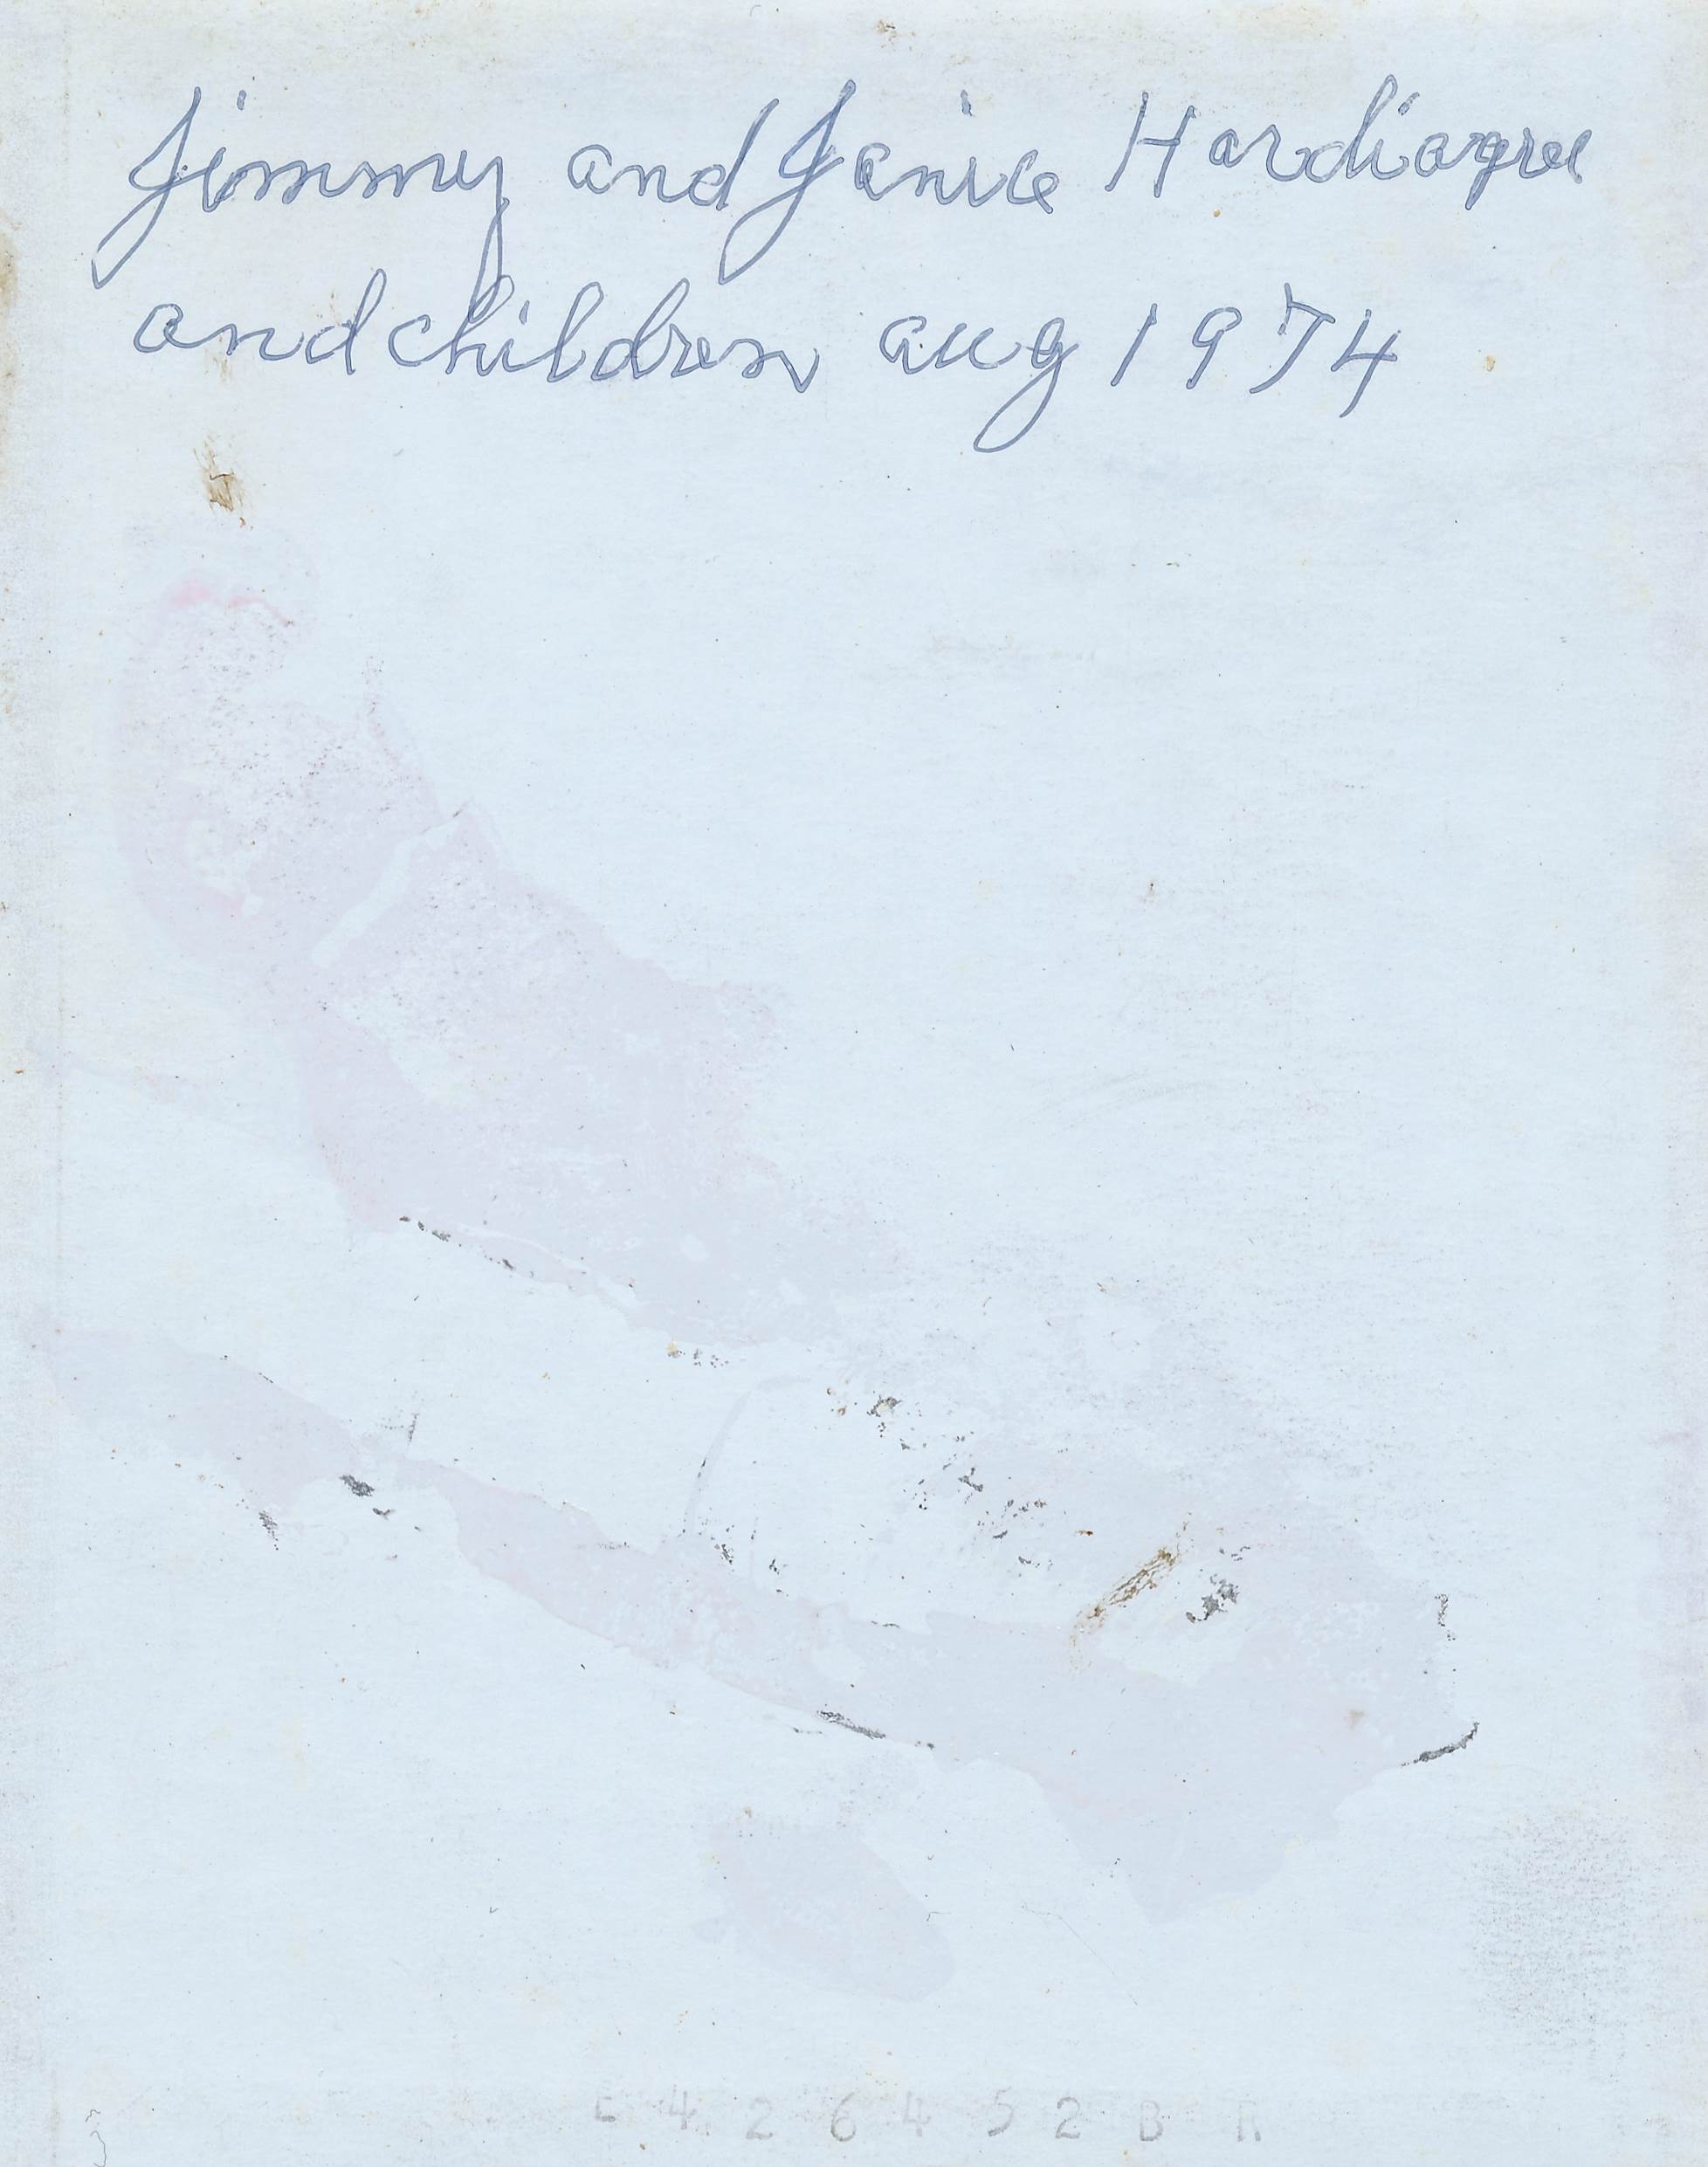 Jimmy and Janice Hardiagree
and children aug 1974
4 2 6 4 5 2 B